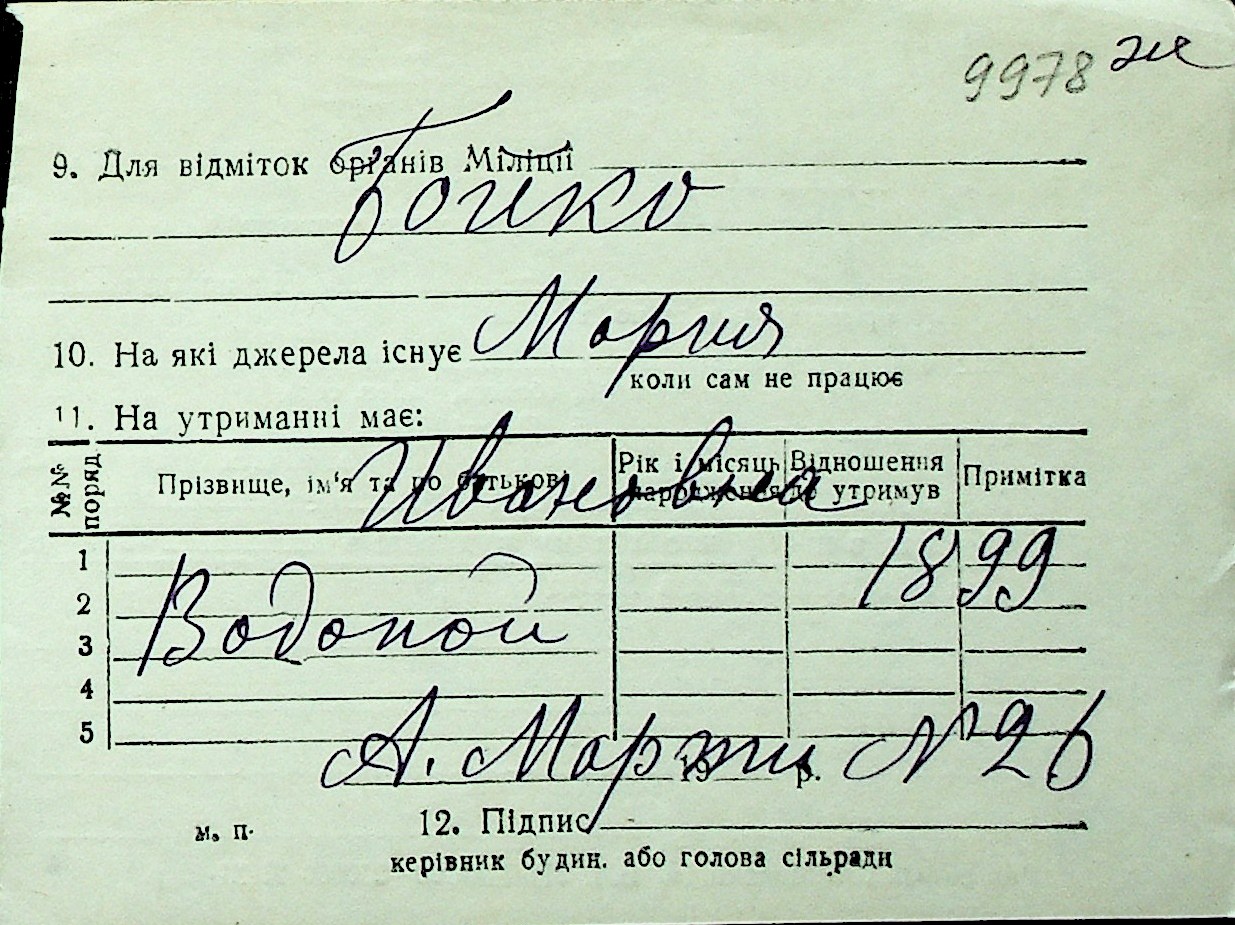 9978 ж
9. Для відміток органів Міліції
Бойко
10. На які джерела існує Мария
коли сам не працює
11. На утриманні має:
Ивановна
№№ поряд. Прізвище, ім'я та по батькові Рік і місяць народження Відношення до утримув Примітка
1 1899
2
3 Водопой
4
5
А. Марти № 26
19 р.
м. п. 12. Підпис
керівник будин. або голова сільради